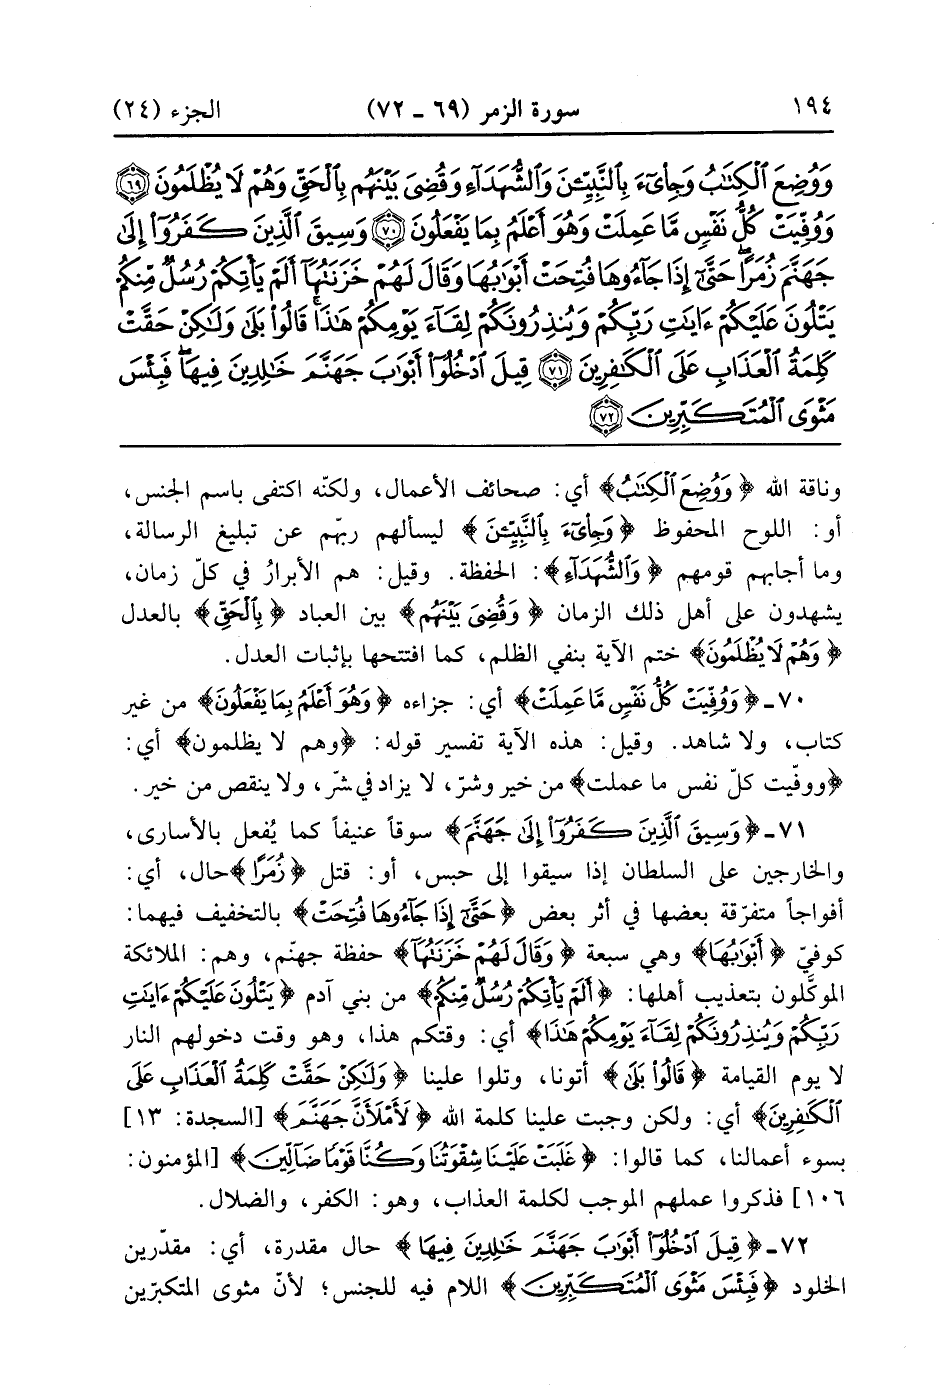 ١٩٤ سورة الزمر (٦٩ ـ ٧٢) الجزء (٢٤)
وَوُضِعَ ٱلْكِتَٰبُ وَجِاْىٓءَ بِٱلنَّبِيِّـۧنَ وَٱلشُّهَدَآءِ وَقُضِىَ بَيْنَهُم بِٱلْحَقِّ وَهُمْ لَا يُظْلَمُونَ ٦٩
وَوُفِّيَتْ كُلُّ نَفْسٍ مَّا عَمِلَتْ وَهُوَ أَعْلَمُ بِمَا يَفْعَلُونَ ٧٠ وَسِيقَ ٱلَّذِينَ كَفَرُوٓاْ إِلَىٰ
جَهَنَّمَ زُمَرًا ۖ حَتَّىٰٓ إِذَا جَآءُوهَا فُتِحَتْ أَبْوَٰبُهَا وَقَالَ لَهُمْ خَزَنَتُهَآ أَلَمْ يَأْتِكُمْ رُسُلٌ مِّنكُمْ
يَتْلُونَ عَلَيْكُمْ ءَايَٰتِ رَبِّكُمْ وَيُنذِرُونَكُمْ لِقَآءَ يَوْمِكُمْ هَٰذَا ۚ قَالُواْ بَلَىٰ وَلَٰكِنْ حَقَّتْ
كَلِمَةُ ٱلْعَذَابِ عَلَى ٱلْكَٰفِرِينَ ٧١ قِيلَ ٱدْخُلُوٓاْ أَبْوَٰبَ جَهَنَّمَ خَٰلِدِينَ فِيهَا ۖ فَبِئْسَ
مَثْوَى ٱلْمُتَكَبِّرِينَ ٧٢
وناقة الله ﴿وَوُضِعَ ٱلْكِتَٰبُ﴾ أي: صحائف الأعمال، ولكنّه اكتفى باسم الجنس،
أو: اللوح المحفوظ ﴿وَجِاْىٓءَ بِٱلنَّبِيِّـۧنَ﴾ ليسألهم ربّهم عن تبليغ الرسالة،
وما أجابهم قومهم ﴿وَٱلشُّهَدَآءِ﴾: الحفظة. وقيل: هم الأبرارُ في كلّ زمان،
يشهدون على أهل ذلك الزمان ﴿وَقُضِىَ بَيْنَهُم﴾ بين العباد ﴿بِٱلْحَقِّ﴾ بالعدل
﴿وَهُمْ لَا يُظْلَمُونَ﴾ ختم الآية بنفي الظلم، كما افتتحها بإثبات العدل.
٧٠ ـ ﴿وَوُفِّيَتْ كُلُّ نَفْسٍ مَّا عَمِلَتْ﴾ أي: جزاءه ﴿وَهُوَ أَعْلَمُ بِمَا يَفْعَلُونَ﴾ من غير
كتاب، ولا شاهد. وقيل: هذه الآية تفسير قوله: ﴿وهم لا يظلمون﴾ أي:
﴿ووفّيت كلّ نفس ما عملت﴾ من خير وشرّ، لا يزاد في شرّ، ولا ينقص من خير.
٧١ ـ ﴿وَسِيقَ ٱلَّذِينَ كَفَرُوٓاْ إِلَىٰ جَهَنَّمَ﴾ سوقاً عنيفاً كما يُفعل بالأسارى،
والخارجين على السلطان إذا سيقوا إلى حبس، أو: قتل ﴿زُمَرًا﴾ حال، أي:
أفواجاً متفرّقة بعضها في أثر بعض ﴿حَتَّىٰٓ إِذَا جَآءُوهَا فُتِحَتْ﴾ بالتخفيف فيهما:
كوفيّ ﴿أَبْوَٰبُهَا﴾ وهي سبعة ﴿وَقَالَ لَهُمْ خَزَنَتُهَآ﴾ حفظة جهنّم، وهم: الملائكة
الموكَّلون بتعذيب أهلها: ﴿أَلَمْ يَأْتِكُمْ رُسُلٌ مِّنكُمْ﴾ من بني آدم ﴿يَتْلُونَ عَلَيْكُمْ ءَايَٰتِ
رَبِّكُمْ وَيُنذِرُونَكُمْ لِقَآءَ يَوْمِكُمْ هَٰذَا﴾ أي: وقتكم هذا، وهو وقت دخولهم النار
لا يوم القيامة ﴿قَالُواْ بَلَىٰ﴾ أتونا، وتلوا علينا ﴿وَلَٰكِنْ حَقَّتْ كَلِمَةُ ٱلْعَذَابِ عَلَى
ٱلْكَٰفِرِينَ﴾ أي: ولكن وجبت علينا كلمة الله ﴿لَأَمْلَأَنَّ جَهَنَّمَ﴾ [السجدة: ١٣]
بسوء أعمالنا، كما قالوا: ﴿غَلَبَتْ عَلَيْنَا شِقْوَتُنَا وَكُنَّا قَوْمًا ضَآلِّينَ﴾ [المؤمنون:
١٠٦] فذكروا عملهم الموجب لكلمة العذاب، وهو: الكفر، والضلال.
٧٢ ـ ﴿قِيلَ ٱدْخُلُوٓاْ أَبْوَٰبَ جَهَنَّمَ خَٰلِدِينَ فِيهَا﴾ حال مقدرة، أي: مقدّرين
الخلود ﴿فَبِئْسَ مَثْوَى ٱلْمُتَكَبِّرِينَ﴾ اللام فيه للجنس؛ لأنّ مثوى المتكبرّين